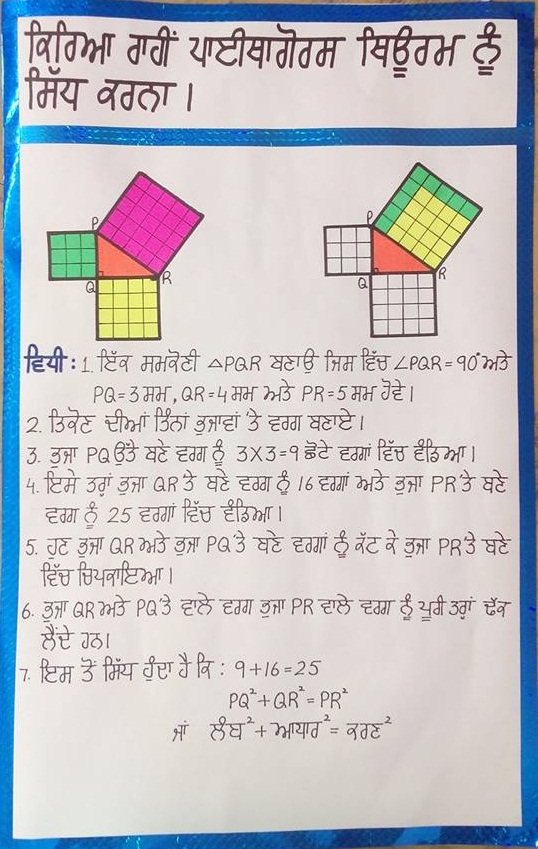 ਕਿਰਿਆ ਰਾਹੀਂ ਪਾਈਥਾਗੋਰਸ ਥਿਊਰਮ ਨੂੰ
ਸਿੱਧ ਕਰਨਾ।
P
Q
R
P
Q
R
ਵਿਧੀ : 1. ਇੱਕ ਸਮਕੋਣੀ △PQR ਬਣਾਉ ਜਿਸ ਵਿੱਚ ∠PQR = 90° ਅਤੇ
PQ = 3 ਸਮ, QR = 4 ਸਮ ਅਤੇ PR = 5 ਸਮ ਹੋਵੇ।
2. ਤਿਕੋਣ ਦੀਆਂ ਤਿੰਨਾਂ ਭੁਜਾਵਾਂ 'ਤੇ ਵਰਗ ਬਣਾਏ।
3. ਭੁਜਾ PQ ਉੱਤੇ ਬਣੇ ਵਰਗ ਨੂੰ 3X3=9 ਛੋਟੇ ਵਰਗਾਂ ਵਿੱਚ ਵੰਡਿਆ।
4. ਇਸੇ ਤਰ੍ਹਾਂ ਭੁਜਾ QR ਤੇ ਬਣੇ ਵਰਗ ਨੂੰ 16 ਵਰਗਾਂ ਅਤੇ ਭੁਜਾ PR 'ਤੇ ਬਣੇ
ਵਰਗ ਨੂੰ 25 ਵਰਗਾਂ ਵਿੱਚ ਵੰਡਿਆ।
5. ਹੁਣ ਭੁਜਾ QR ਅਤੇ ਭੁਜਾ PQ 'ਤੇ ਬਣੇ ਵਰਗਾਂ ਨੂੰ ਕੱਟ ਕੇ ਭੁਜਾ PR 'ਤੇ ਬਣੇ
ਵਿੱਚ ਚਿਪਕਾਇਆ।
6. ਭੁਜਾ QR ਅਤੇ PQ 'ਤੇ ਵਾਲੇ ਵਰਗ ਭੁਜਾ PR ਵਾਲੇ ਵਰਗ ਨੂੰ ਪੂਰੀ ਤਰ੍ਹਾਂ ਢੱਕ
ਲੈਂਦੇ ਹਨ।
7. ਇਸ ਤੋਂ ਸਿੱਧ ਹੁੰਦਾ ਹੈ ਕਿ : 9+16=25
PQ² + QR² = PR²
ਜਾਂ ਲੰਬ² + ਆਧਾਰ² = ਕਰਣ²